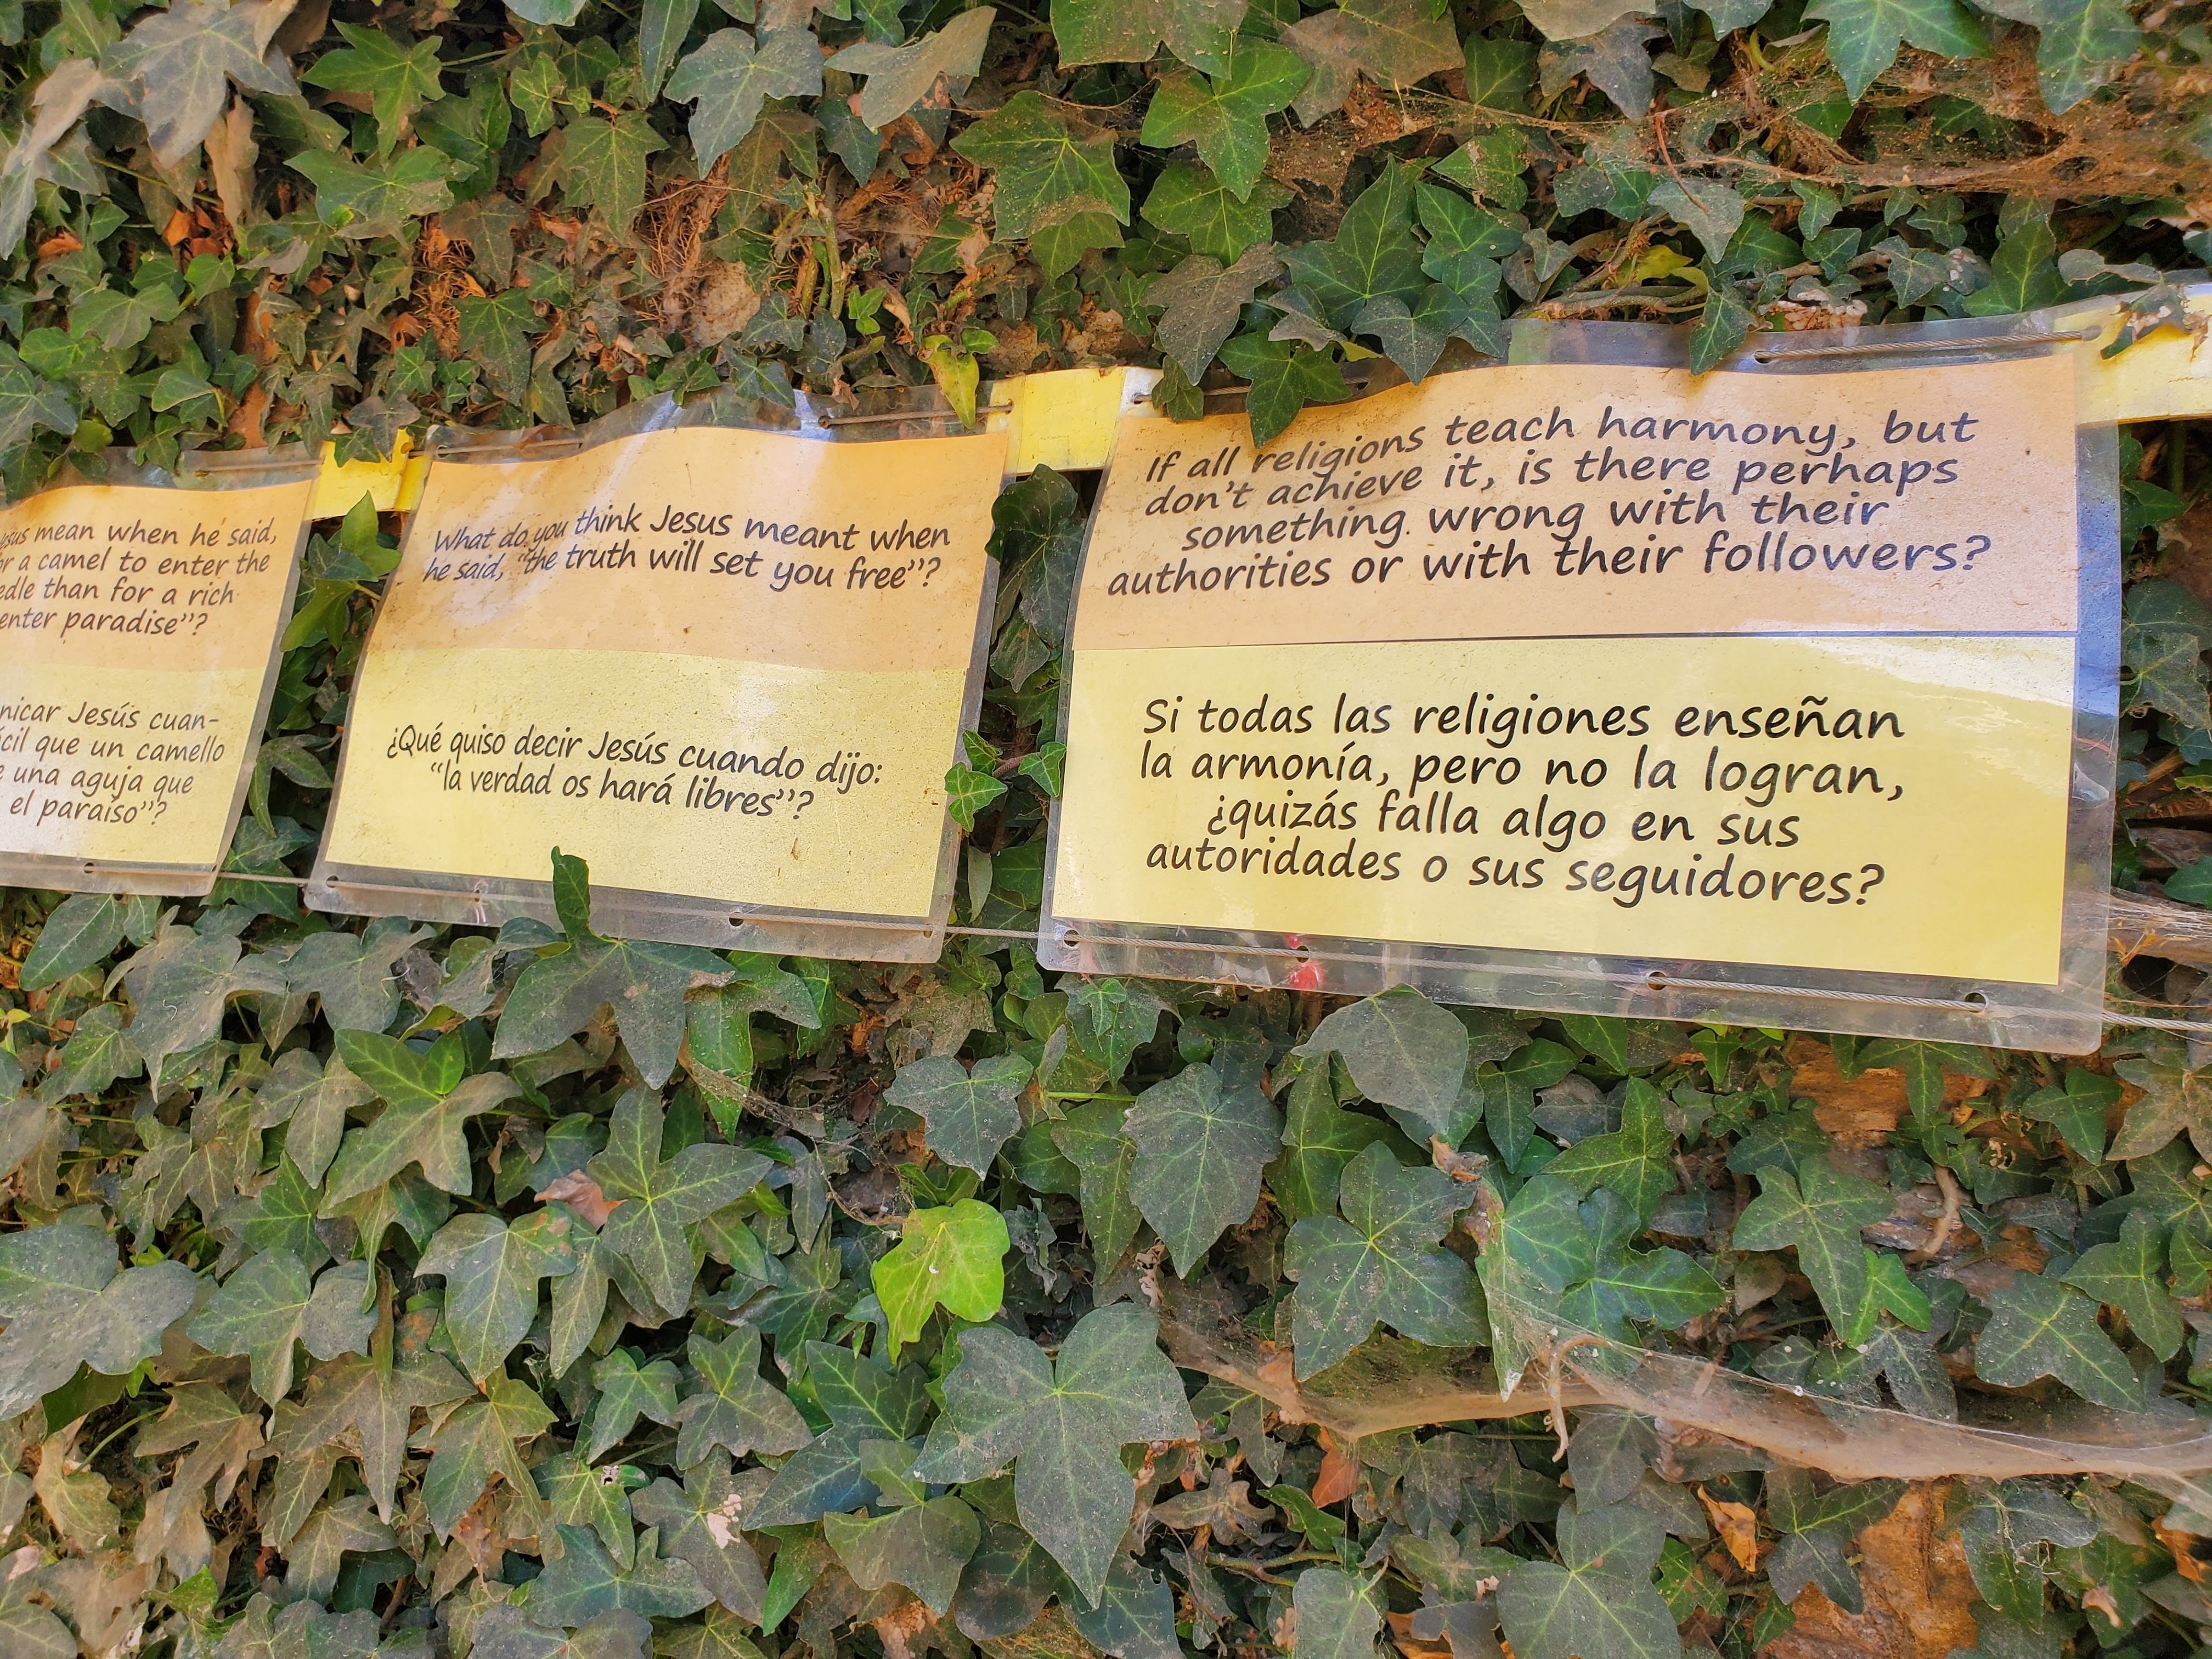 esus mean when he said,
or a camel to enter the
edle than for a rich
enter paradise"?
nicar Jesús cuan-
cil que un camello
e una aguja que
el paraíso"?
What do you think Jesus meant when
he said, "the truth will set you free"?
¿Qué quiso decir Jesús cuando dijo:
"la verdad os hará libres"?
If all religions teach harmony, but
don't achieve it, is there perhaps
something wrong with their
authorities or with their followers?
Si todas las religiones enseñan
la armonía, pero no la logran,
¿quizás falla algo en sus
autoridades o sus seguidores?